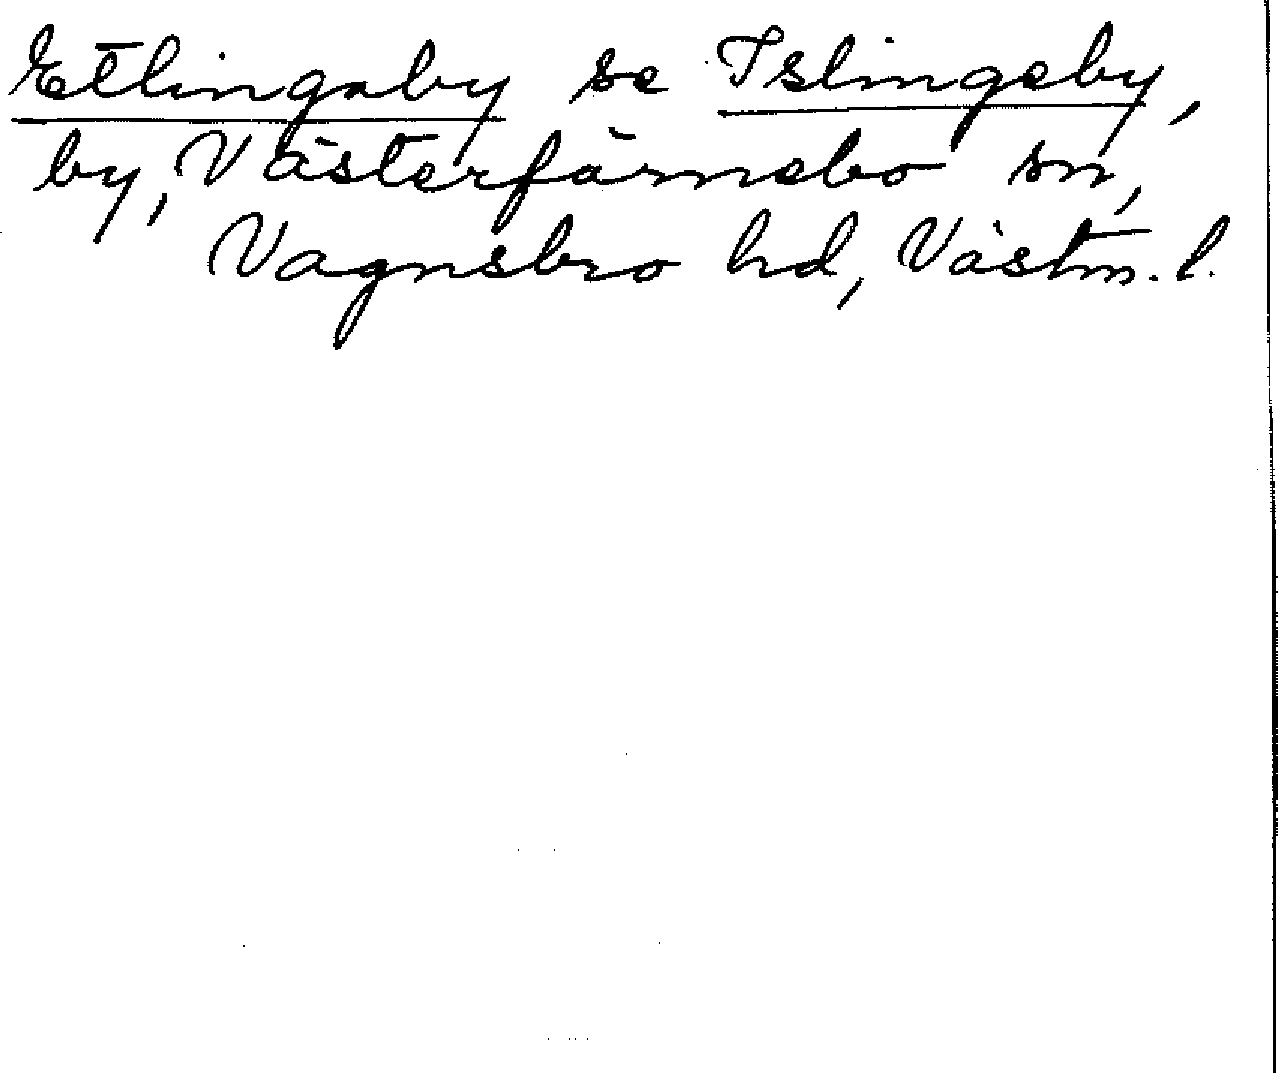 Etlingaby se Islingeby,
by, Västerfärnebo sn,
Vagnsbro hd, Västm. l.